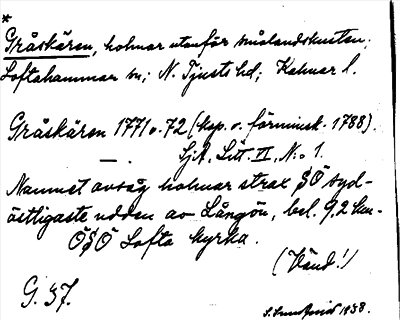 *
Gråskären, holmar utanför smålandskusten;
Loftahammar sn; N. Tjusts hd; Kalmar l.
Gråskären 1771 o. 72 (kop. o. förminsk. 1788).
— Sjök, Litt. II, N:o 1.
Namnet avsåg holmar strax SÖ syd-
östligaste udden av Långön, bel. 9,2 km.
ÖSÖ Lofta kyrka.
(Vänd!)
G. 37.
1938.